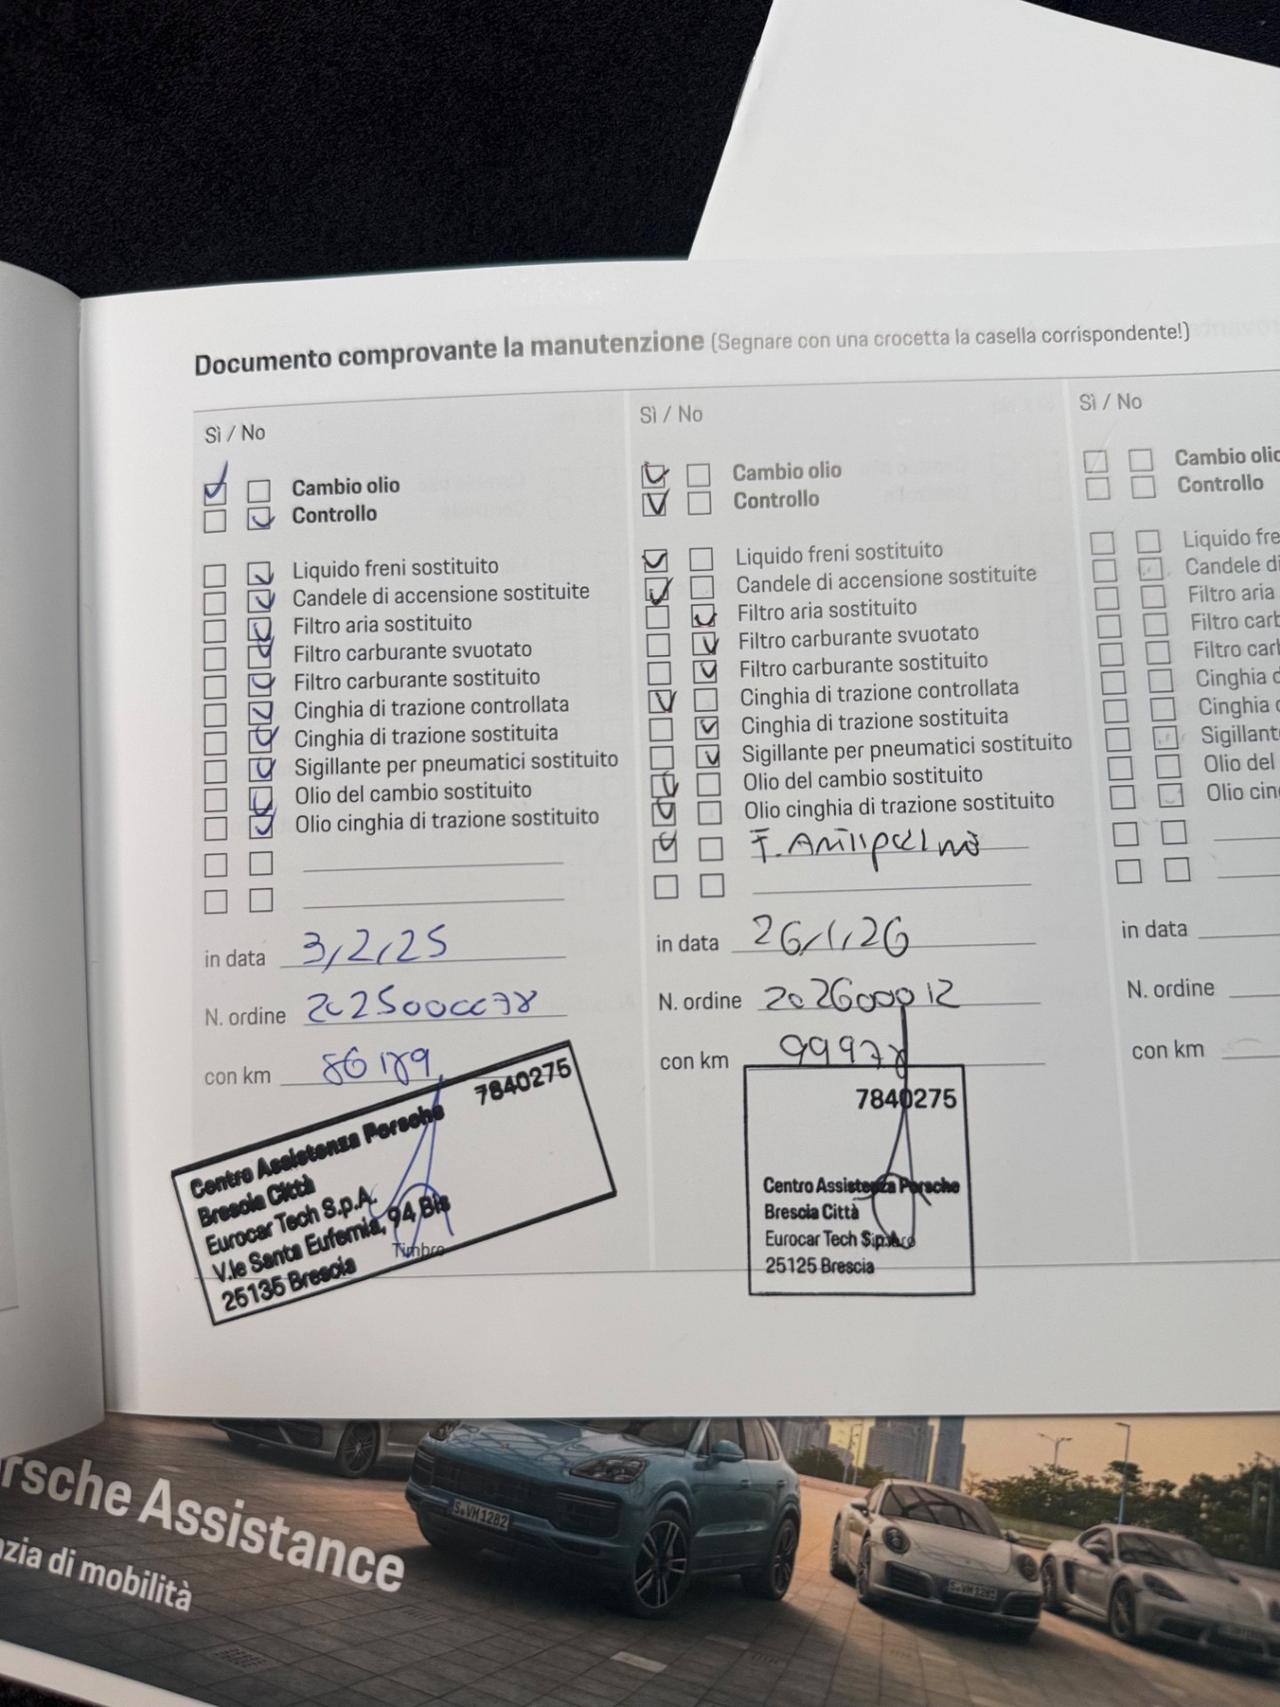 Documento comprovante la manutenzione (Segnare con una crocetta la casella corrispondente!)
Sì / No
Cambio olio
Controllo
Liquido freni sostituito
Candele di accensione sostituite
Filtro aria sostituito
Filtro carburante svuotato
Filtro carburante sostituito
Cinghia di trazione controllata
Cinghia di trazione sostituita
Sigillante per pneumatici sostituito
Olio del cambio sostituito
Olio cinghia di trazione sostituito
in data 3/2/25
N. ordine
con km 86189
Centro Assistenza Porsche 7840275
Brescia Città
Eurocar Tech S.p.A.
V.le Santa Eufemia, 94 Bis
25135 Brescia
Timbro
Sì / No
Cambio olio
Controllo
Liquido freni sostituito
Candele di accensione sostituite
Filtro aria sostituito
Filtro carburante svuotato
Filtro carburante sostituito
Cinghia di trazione controllata
Cinghia di trazione sostituita
Sigillante per pneumatici sostituito
Olio del cambio sostituito
Olio cinghia di trazione sostituito
F. Antipolline
in data 26/1/26
N. ordine 202600012
con km 99978
7840275
Centro Assistenza Porsche
Brescia Città
Eurocar Tech S.p.A.
25125 Brescia
Sì / No
Cambio olio
Controllo
Liquido fre
Candele di
Filtro aria
Filtro carb
Filtro carb
Cinghia d
Cinghia
Sigillant
Olio del
Olio cin
in data
N. ordine
con km
rsche Assistance
zia di mobilità
S·VM 1282